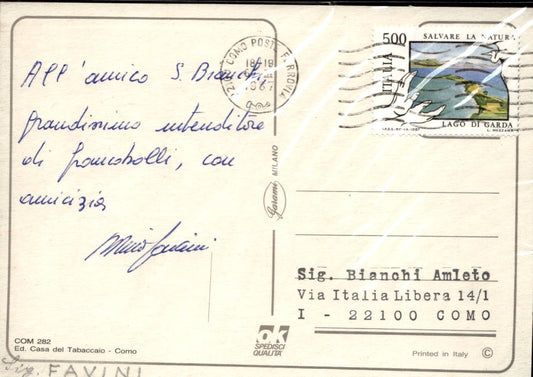 All'amico S. Bianchi,
grandissimo intenditore
di francobolli, con
amicizia
COM 282
Ed. Casa del Tabaccaio - Como
Sig. FAVINI
Garami MILANO
OK
SPEDISCI
QUALITÀ
COMO POSTE FERROVIA
18-19
500
SALVARE LA NATURA
ITALIA
LAGO DI GARDA
Sig. Bianchi Amleto
Via Italia Libera 14/1
I - 22100 COMO
Printed in Italy ©